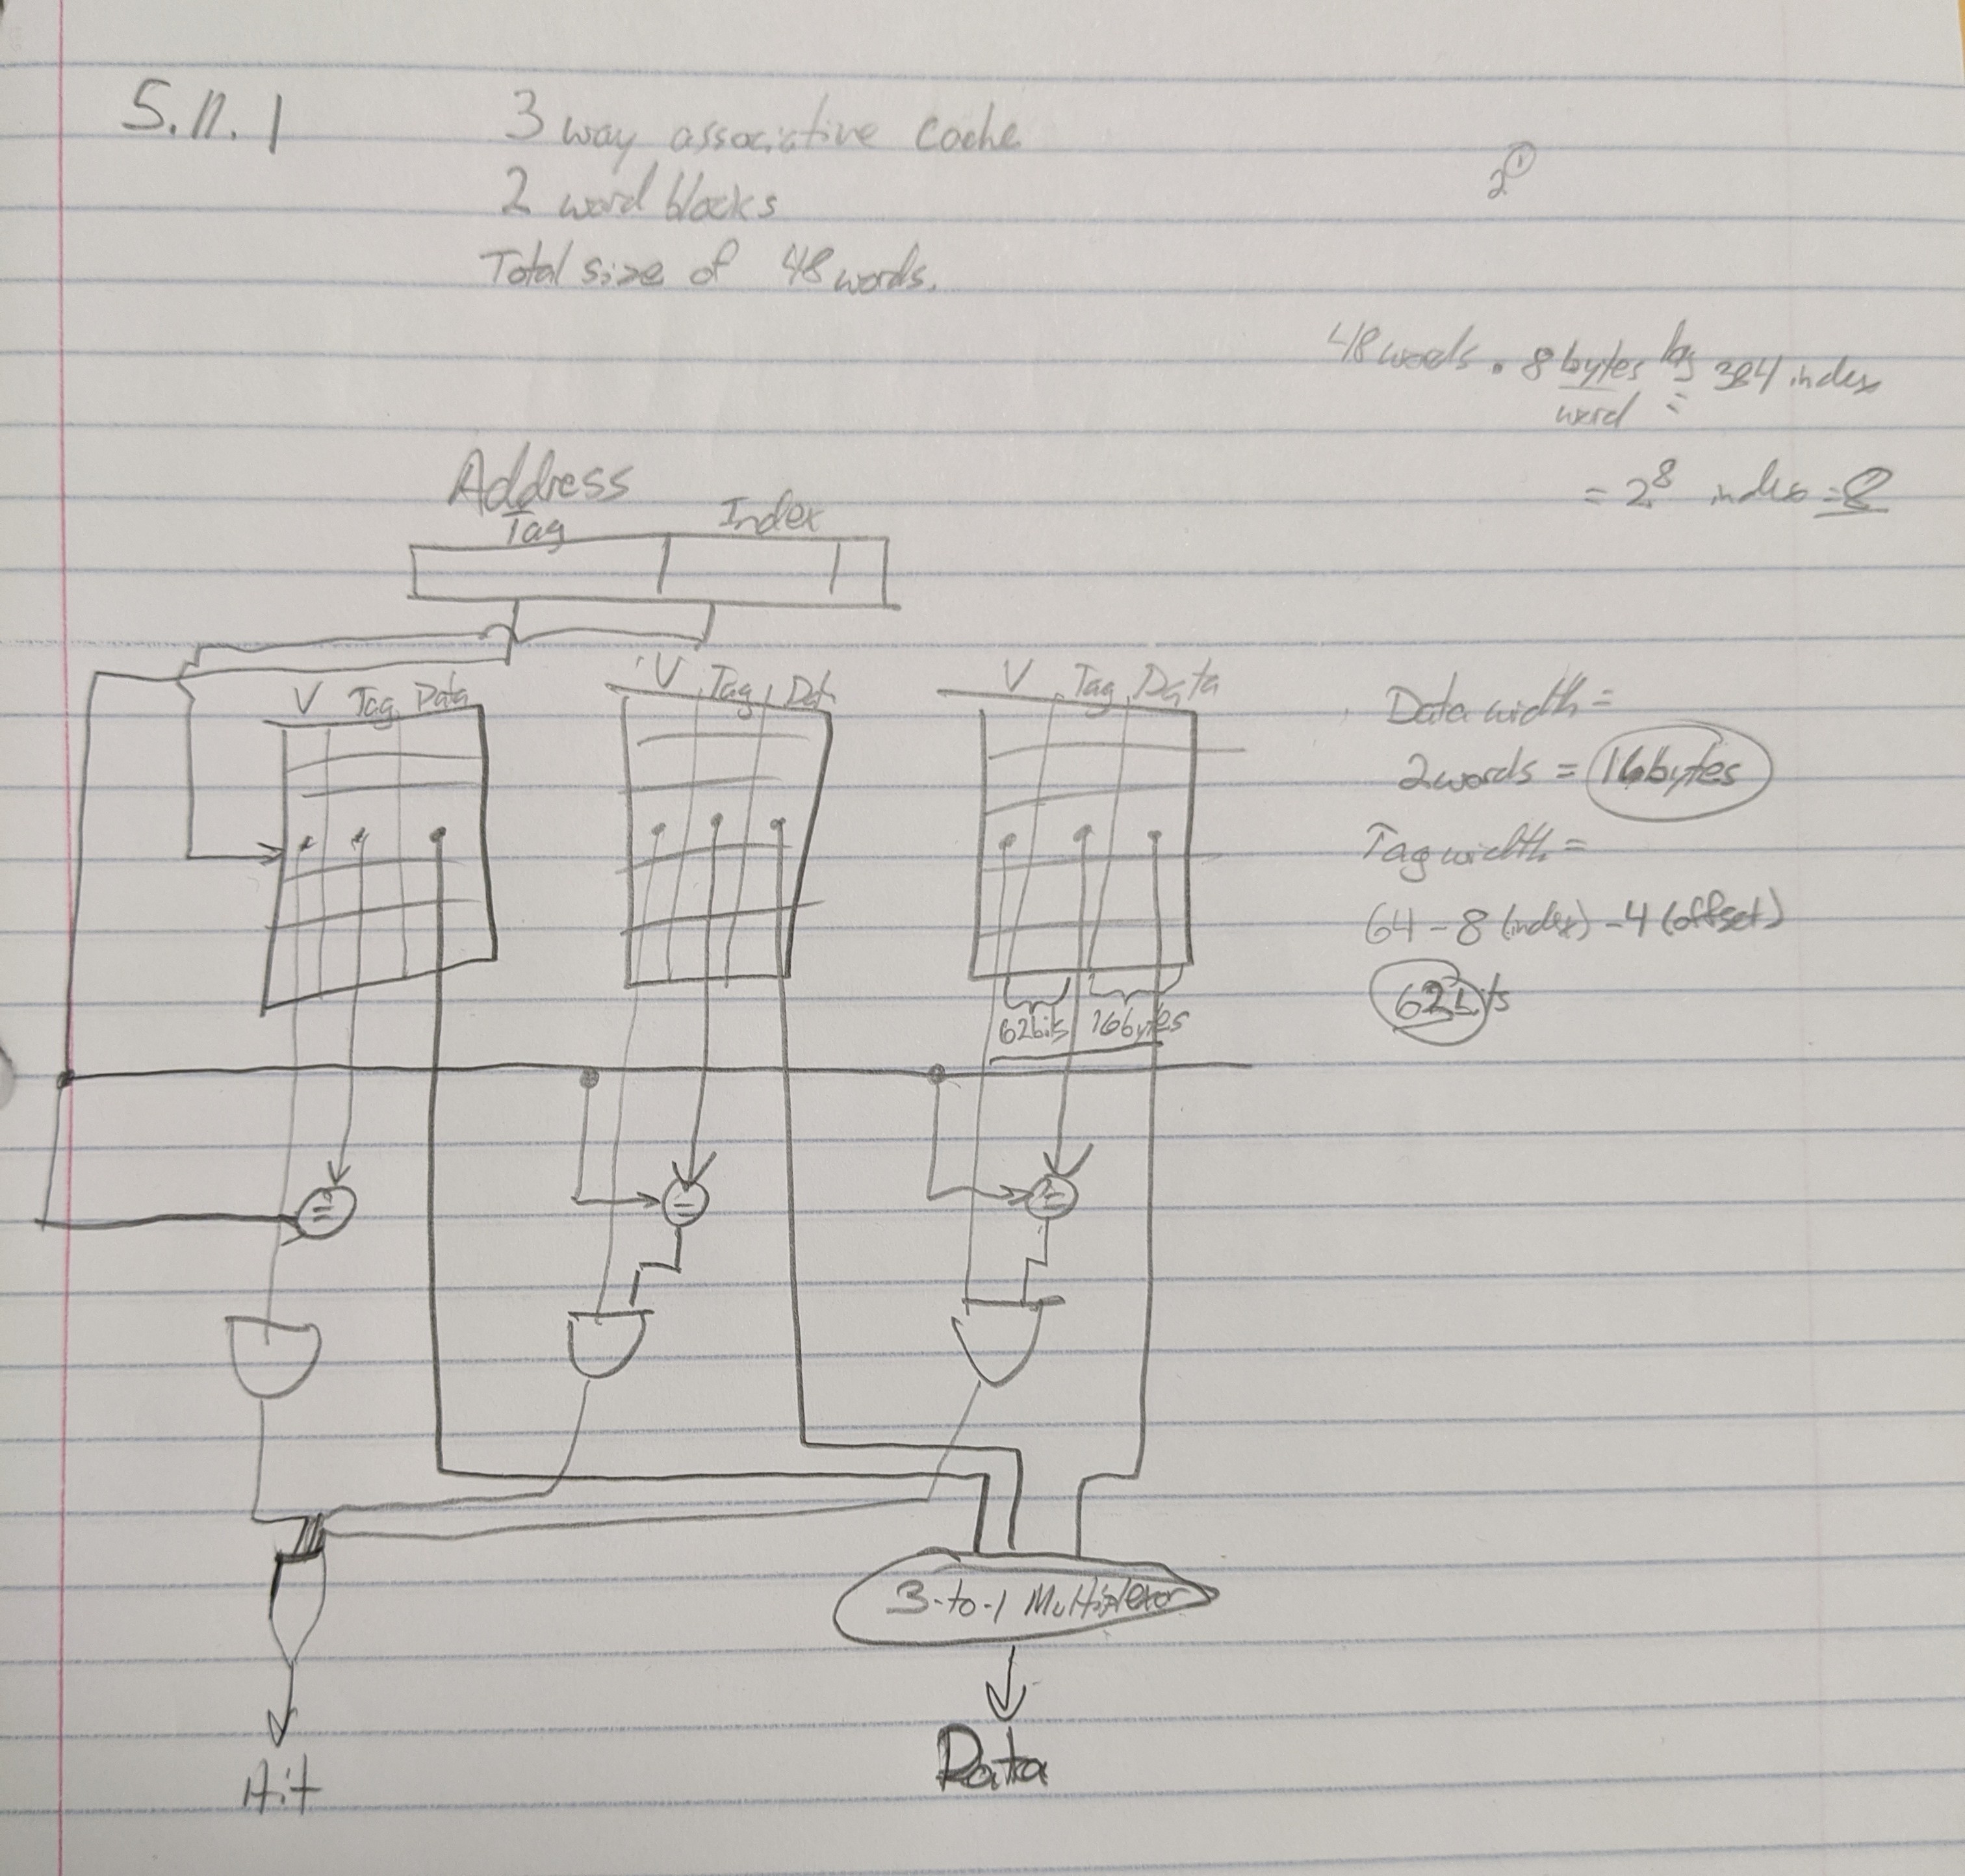 5.11.1
3 way associative cache
2 word blocks
Total size of 48 words.
2①
48 words . 8 bytes/word = log 384 index
= 2^8 index = 8
Address
Tag Index
V Tag Data
V Tag Data
V Tag Data
Data width =
2 words = 16 bytes
Tag width =
64 - 8 (index) - 4 (offset)
62 bits
62 bits 16 bytes
=
=
=
3-to-1 Multiplexor
Hit
Data